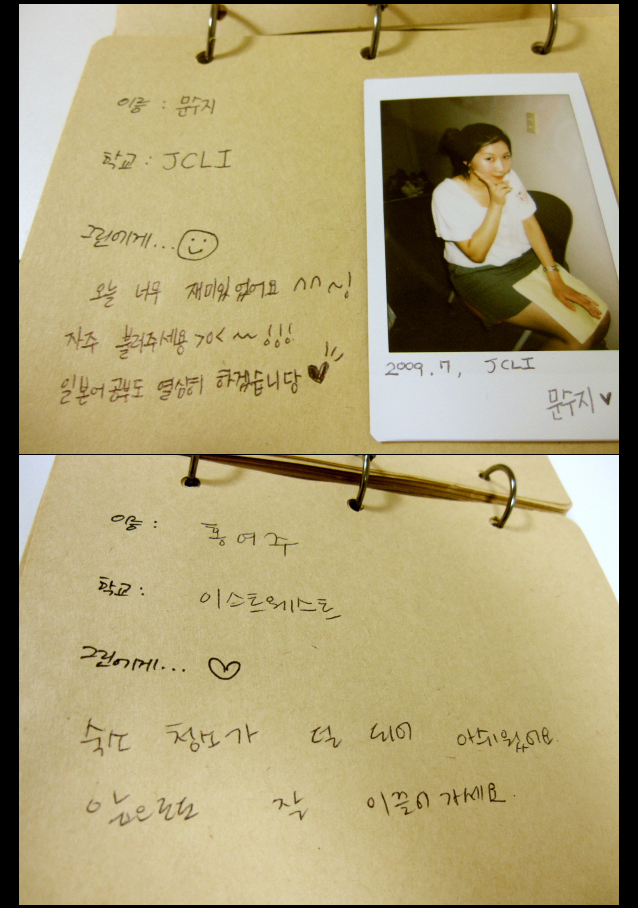 이름 : 문수지
학교 : JCLI
그린에게...
오늘 너무 재미있었어요 ^^~!
자주 불러주세용 >o< ~~!!!
일본어공부도 열심히 하겠습니당 ♥
2009.7, JCLI
문수지 ♥
이름 :
홍여주
학교 :
이스트웨스트
그린에게... ♡
숙소 청소가 덜 되어 아쉬웠어요.
앞으로도 잘 이끌어 가세요.